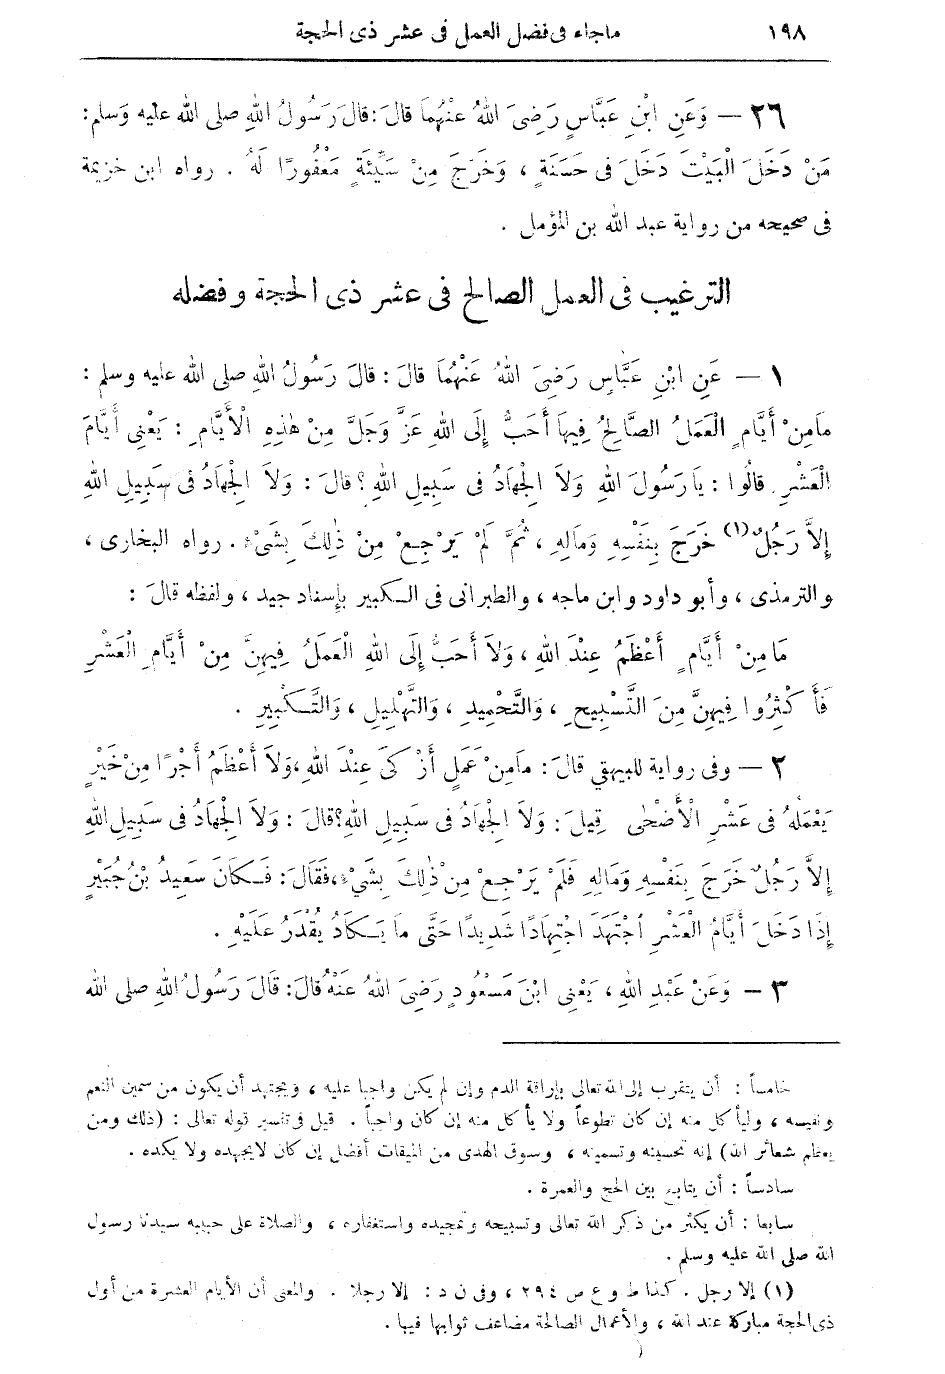 ١٩٨ ماجاء فى فضل العمل فى عشر ذى الحجة
٢٦ — وَعَنِ ابْنِ عَبَّاسٍ رَضِىَ اللهُ عَنْهُمَا قالَ: قالَ رَسُولُ اللهِ صلى الله عليه وَسلم:
مَنْ دَخَلَ الْبَيْتَ دَخَلَ فى حَسَنَةٍ ، وَخَرَجَ مِنْ سَيِّئَةٍ مَغْفُورًا لَهُ . رواه ابن خزيمة
فى صحيحه من رواية عبد الله بن المؤمل .
الترغيب فى العمل الصالح فى عشر ذى الحجة وفضله
١ — عَنِ ابْنِ عَبَّاسٍ رَضِىَ اللهُ عَنْهُمَا قالَ : قالَ رَسُولُ اللهِ صلى الله عليه وسلم :
مَامِنْ أَيَّامٍ الْعَمَلُ الصَّالِحُ فِيهَا أَحَبُّ إِلَى اللهِ عَزَّ وَجَلَّ مِنْ هٰذِهِ الْأَيَّامِ : يَعْنِى أَيَّامَ
الْعَشْرِ. قالُوا : يَارَسُولَ اللهِ وَلاَ الْجِهَادُ فى سَبِيلِ اللهِ ؟ قالَ : وَلاَ الْجِهَادُ فى سَبِيلِ اللهِ
إِلاَّ رَجُلٌ (١) خَرَجَ بِنَفْسِهِ وَمَالِهِ ، ثُمَّ لَمْ يَرْجِعْ مِنْ ذٰلِكَ بِشَىْءٍ . رواه البخارى ،
والترمذى ، وأبو داود وابن ماجه ، والطبرانى فى الكبير بإسناد جيد ، ولفظه قالَ :
مَا مِنْ أَيَّامٍ أَعْظَمُ عِنْدَ اللهِ ، وَلاَ أَحَبُّ إِلَى اللهِ الْعَمَلُ فِيهِنَّ مِنْ أَيَّامِ الْعَشْرِ
فَأَكْثِرُوا فِيهِنَّ مِنَ التَّسْبِيحِ ، وَالتَّحْمِيدِ ، وَالتَّهْلِيلِ ، وَالتَّكْبِيرِ .
٢ — وفى رواية للبيهقي قالَ : مَامِنْ عَمَلٍ أَزْكَى عِنْدَ اللهِ ، وَلاَ أَعْظَمُ أَجْرًا مِنْ خَيْرٍ
يَعْمَلُهُ فى عَشْرِ الْأَضْحٰى قِيلَ : وَلاَ الْجِهَادُ فى سَبِيلِ اللهِ؟ قالَ : وَلاَ الْجِهَادُ فى سَبِيلِ اللهِ
إِلاَّ رَجُلٌ خَرَجَ بِنَفْسِهِ وَمَالِهِ فَلَمْ يَرْجِعْ مِنْ ذٰلِكَ بِشَىْءٍ، فَقَالَ: فَكَانَ سَعِيدُ بْنُ جُبَيْرٍ
إِذَا دَخَلَ أَيَّامُ الْعَشْرِ اجْتَهَدَ اجْتِهَادًا شَدِيدًا حَتَّى مَا يَكَادُ يُقْدَرُ عَلَيْهِ .
٣ — وَعَنْ عَبْدِ اللهِ ، يَعْنِى ابْنَ مَسْعُودٍ رَضِىَ اللهُ عَنْهُ قالَ: قَالَ رَسُولُ اللهِ صلى الله
خامساً : أن يتقرب إلى الله تعالى بإراقة الدم وإن لم يكن واجبا عليه ، ويجتهد أن يكون من سمين النعم
ونفيسه ، وليأ كل منه إن كان تطوعاً ولا يأ كل منه إن كان واجباً . قيل فى تفسير قوله تعالى : (ذلك ومن
يعظم شعائر الله) إنه تحسينه وتسمينه ، وسوق الهدى من الميقات أفضل إن كان لايجهده ولا يكده .
سادساً : أن يتابع بين الحج والعمرة .
سابعا : أن يكثر من ذكر الله تعالى وتسبيحه وتمجيده واستغفاره ، والصلاة على حبيبه سيدنا رسول
الله صلى الله عليه وسلم .
(١) إلا رجل . كذا ط و ع ص ٢٩٤ ، وفى ن د : إلا رجلا . والمعنى أن الأيام العشرة من أول
ذى الحجة مباركة عند الله ، والأعمال الصالحة مضاعف ثوابها فيها .